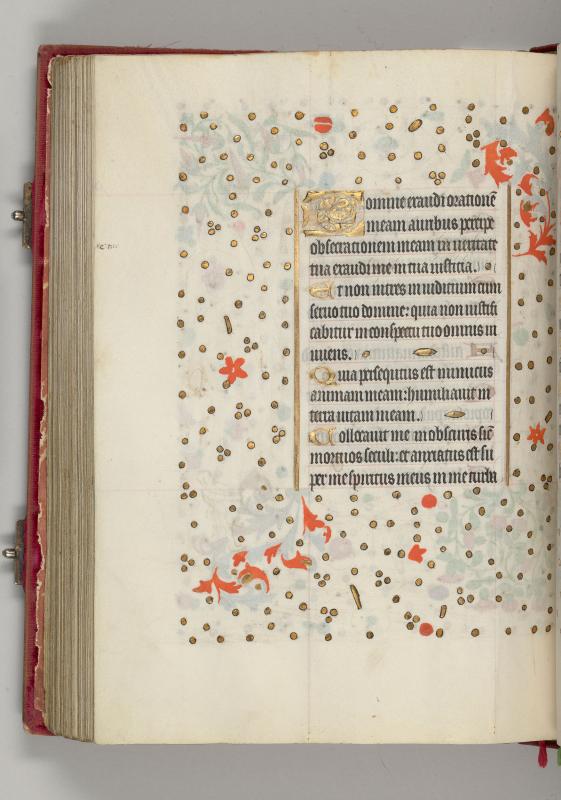 Domine eraudi orationē
meam auribus percipe
obsecrationem meam in ueritate
tua eraudi me in tua iusticia.
Et non intres in iudicium cum
seruo tuo domine: quia non iustifi
cabitur in conspectu tuo omnis ui
uens.
Quia persequutus est inimicus
animam meam: humiliauit in
terra uitam meam.
Collocauit me in obscuris sic̄
mortuos seculi: et anxiatus est su
per me spiritus meus in me turba